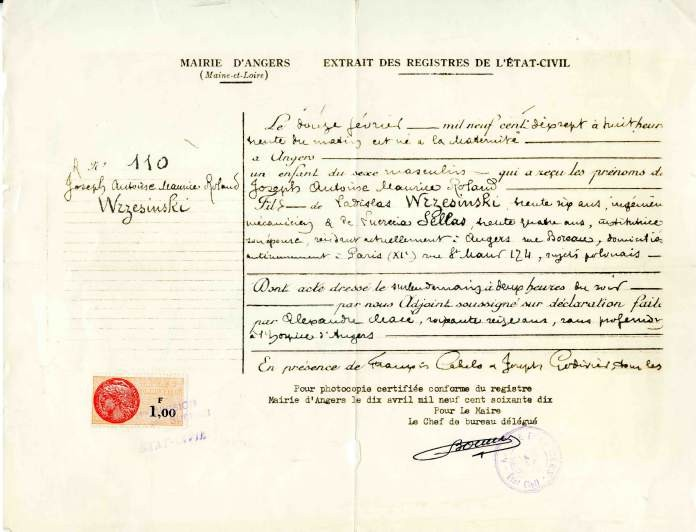 MAIRIE D'ANGERS
(Maine-et-Loire)
EXTRAIT DES REGISTRES DE L'ÉTAT-CIVIL
N° 110
Joseph Antoine Maurice Roland
WRZESINSKI
Le douze février mil neuf cent dix sept à huit heures
trente du matin est né à la Maternité
à Angers
un enfant du sexe masculin qui a reçu les prénoms de
Joseph Antoine Maurice Roland
Fils de Ladislas WRZESINSKI, trente six ans, ingénieur
mécanicien & de Lucrecia SELLAS, trente quatre ans, institutrice
son épouse, résidant actuellement à Angers rue Boreau, domiciliés
à Paris (XIe) rue St Maur 174, sujets polonais
Dont acté dressé le surlendemain à deux heures du soir
par nous Adjoint soussigné sur déclaration faite
par Alexandre Macé, soixante seize ans, sans profession
à l'hospice d'Angers
En présence de François Cabelo & Joseph Godivier, tous les
Pour photocopie certifiée conforme du registre
Mairie d'Angers le dix avril mil neuf cent soixante dix
Pour Le Maire
Le Chef de bureau délégué
F
1,00
ETAT-CIVIL
Etat Civil